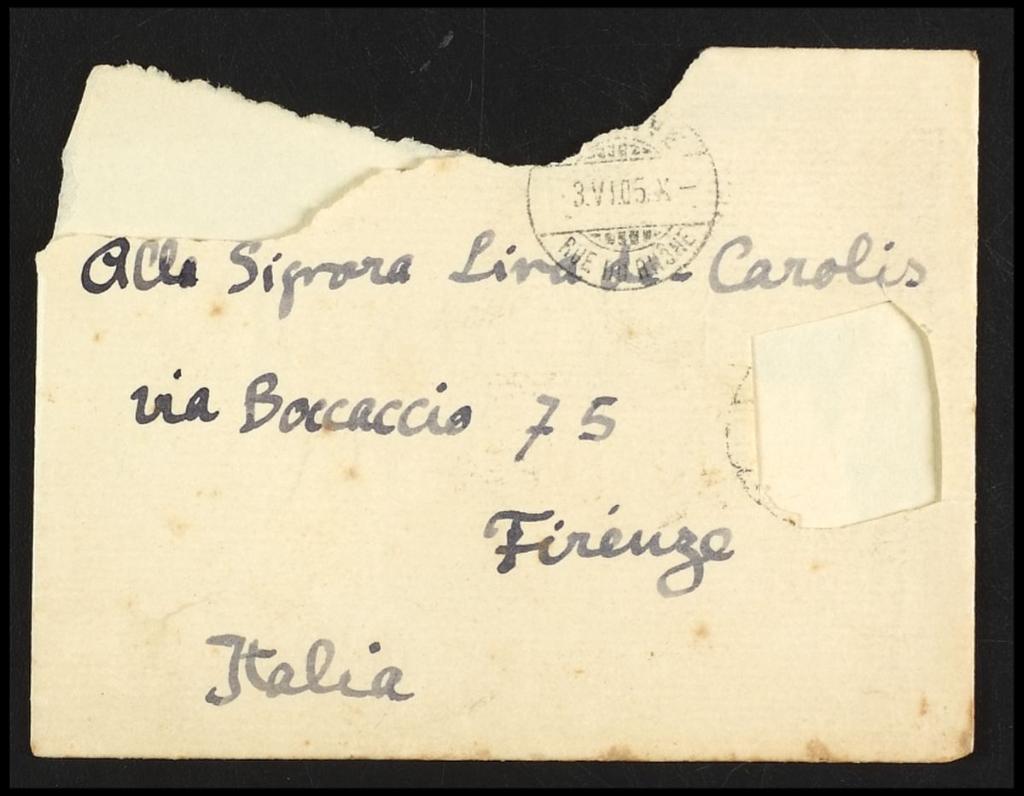 3.VI.05.X-
RUE DU RHONE
Alla Signora Lina de Carolis
via Boccaccio 75
Firenze
Italia